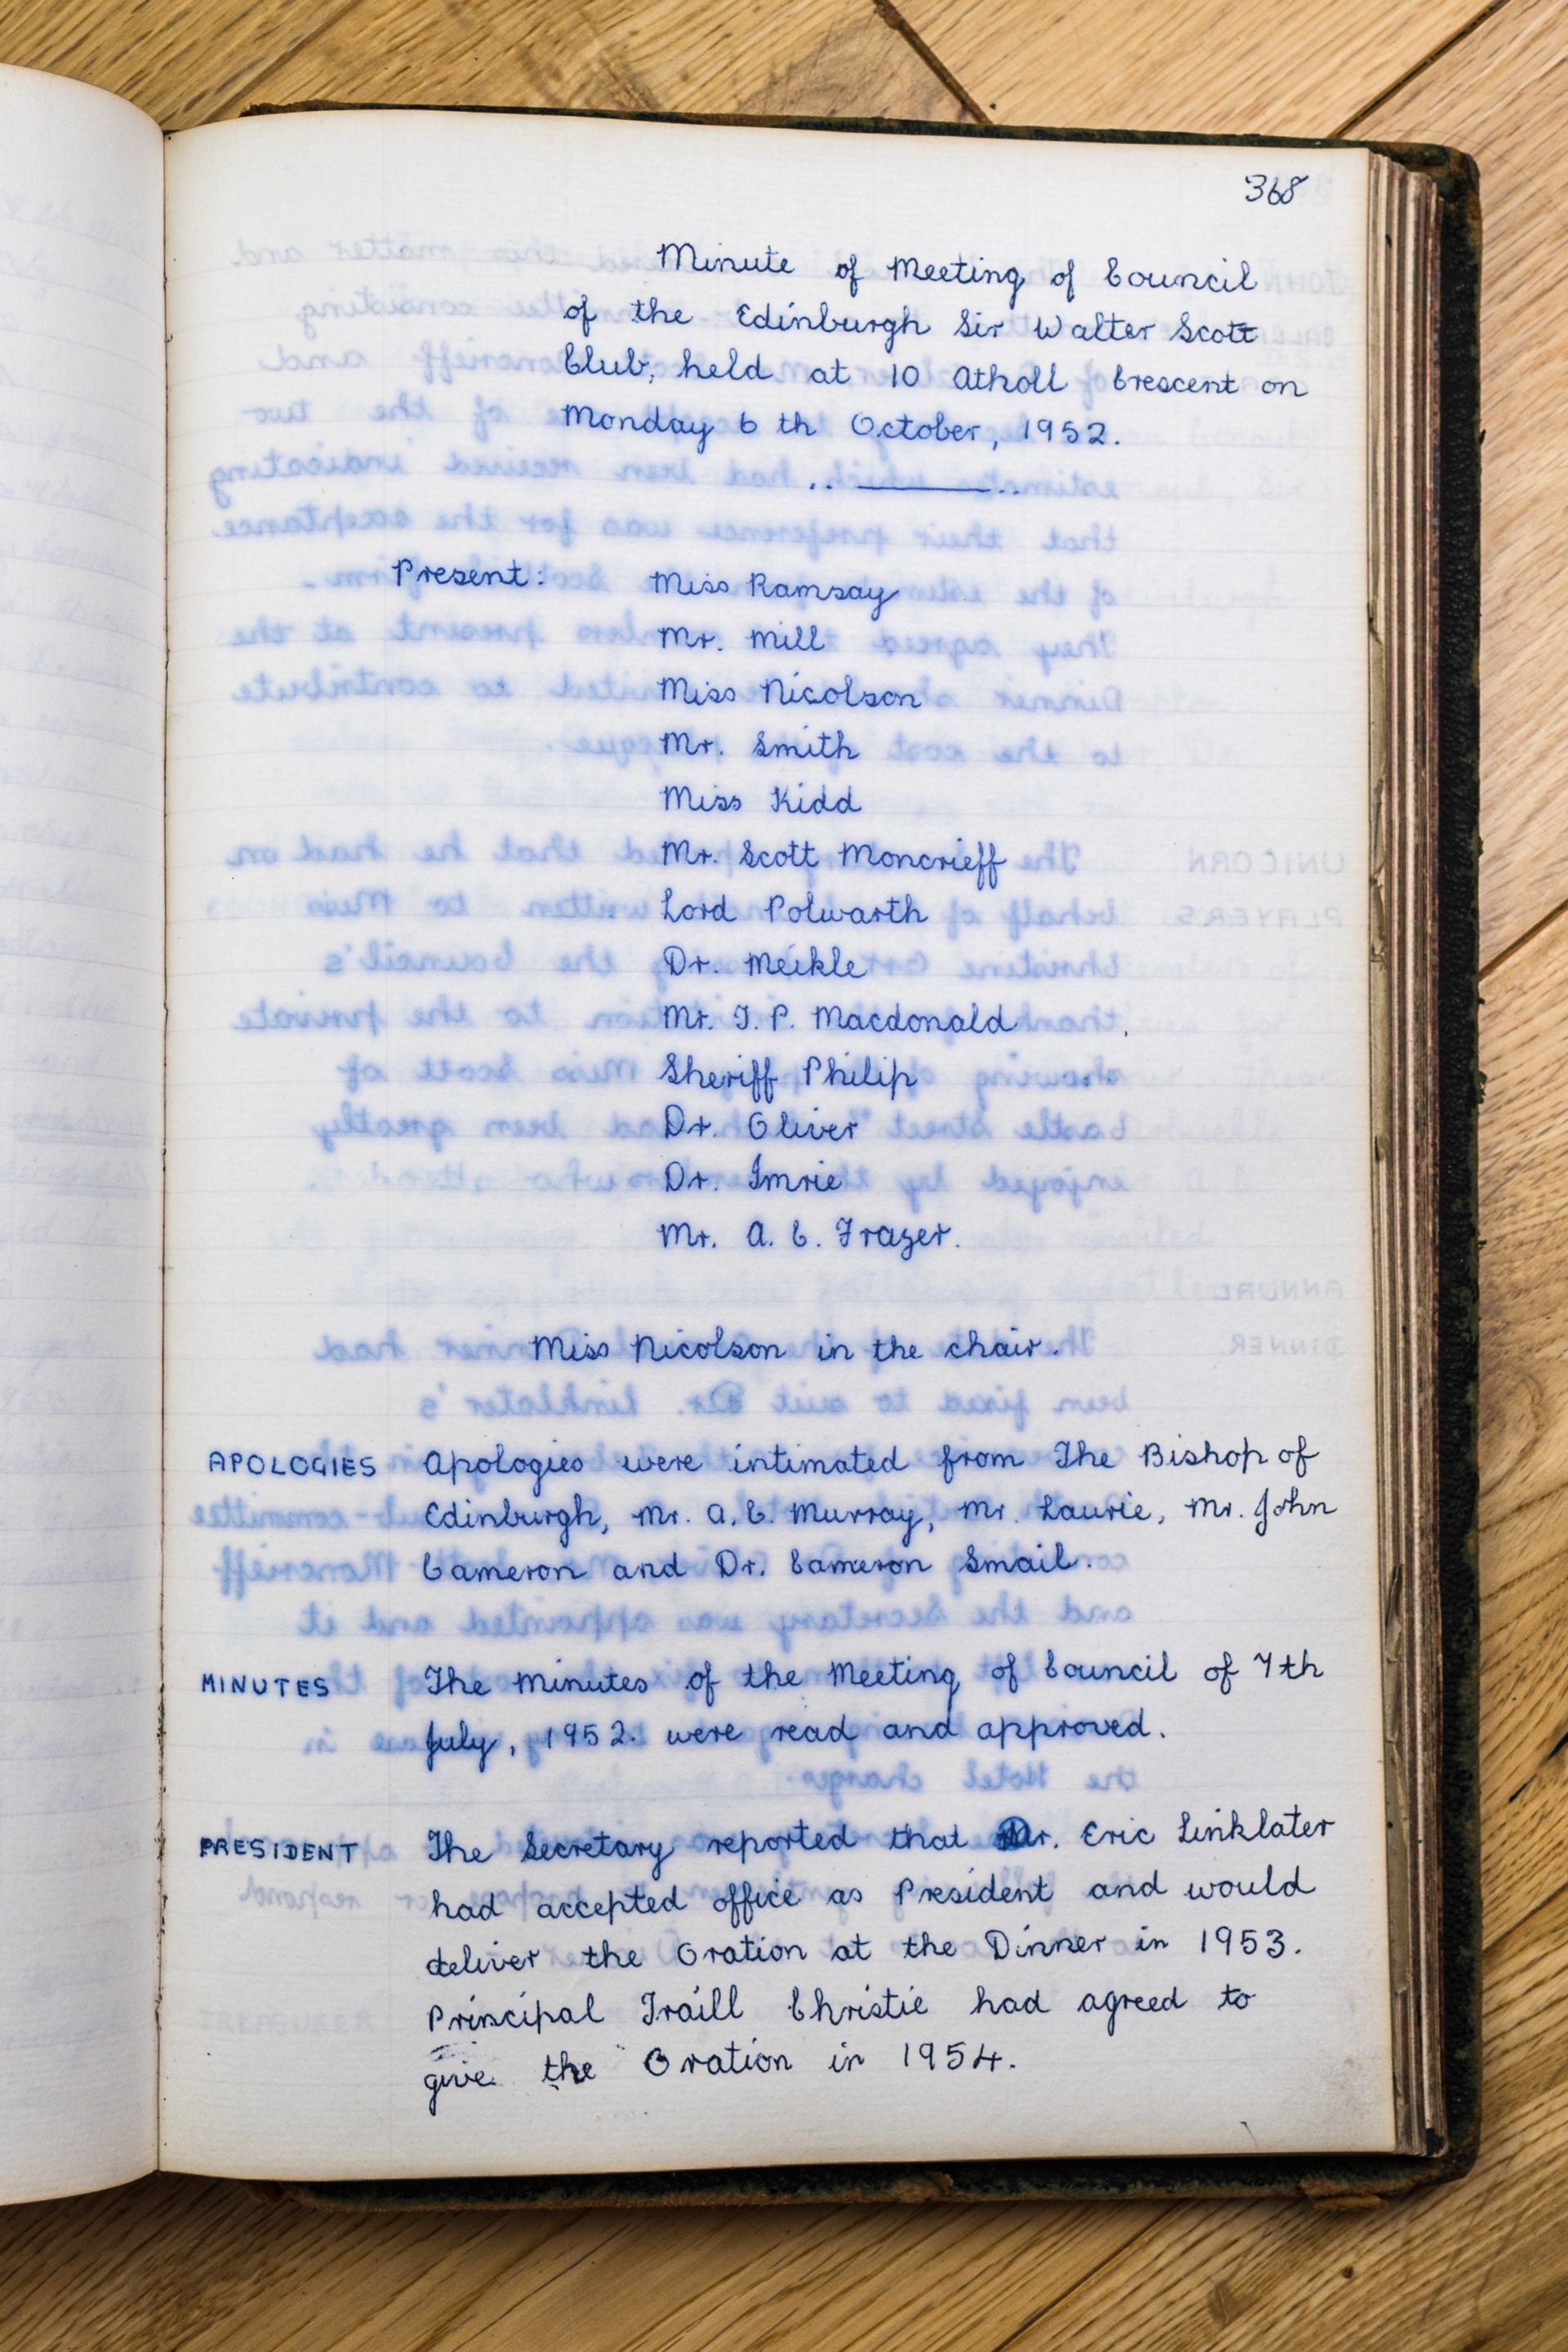 368
Minute of Meeting of Council
of the Edinburgh Sir Walter Scott
Club, held at 10 Atholl Crescent on
Monday 6 th October, 1952.
Present: Miss Ramsay
Mr. Mill
Miss Nicolson
Mr. Smith
Miss Kidd
Mr. Scott Moncrieff
Lord Polwarth
Dr. Meikle
Mr. I. P. Macdonald
Sheriff Philip
Dr. Oliver
Dr. Imrie
Mr. A. C. Frazer.
Miss Nicolson in the chair.
APOLOGIES Apologies were intimated from The Bishop of
Edinburgh, Mr. A. C. Murray, Mr. Laurie, Mr. John
Cameron and Dr. Cameron Smail.
MINUTES The minutes of the Meeting of Council of 7th
July, 1952. were read and approved.
PRESIDENT The Secretary reported that Dr. Eric Linklater
had accepted office as President and would
deliver the Oration at the Dinner in 1953.
Principal Traill Christie had agreed to
give the Oration in 1954.